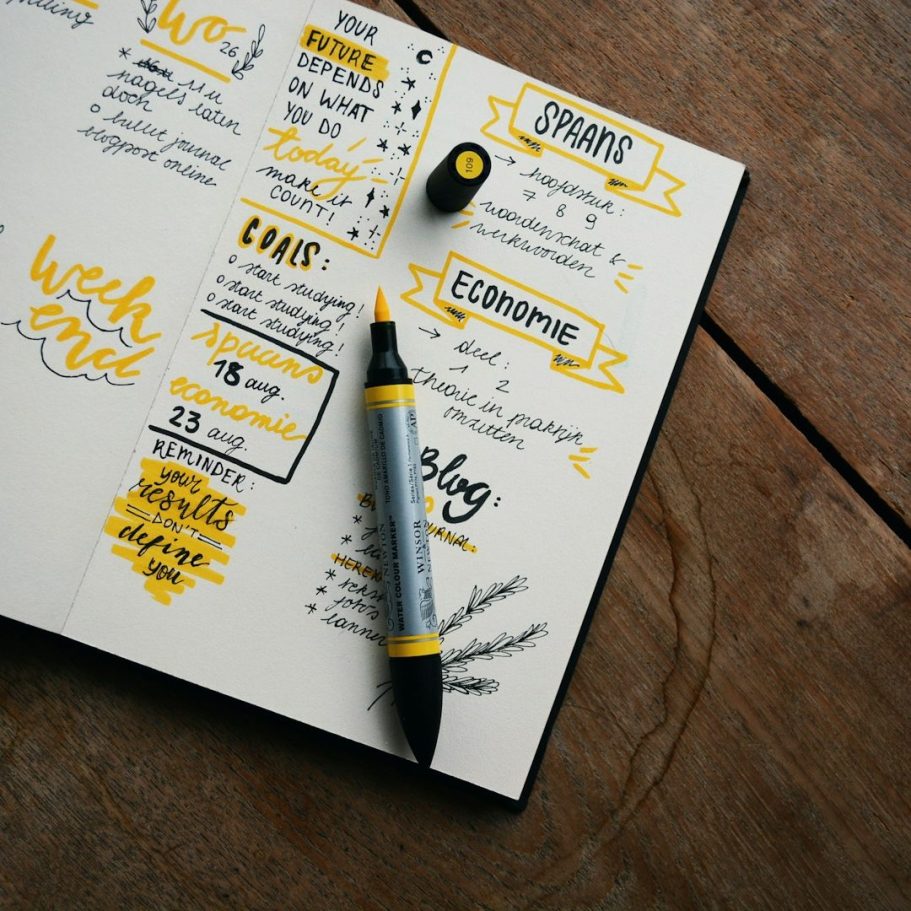 Wo 26
11 u
nagels laten
doen
bullet journal
blogpost online
week
end
YOUR
FUTURE
DEPENDS
ON WHAT
YOU DO
today
make it
COUNT!
GOALS:
start studying!
start studying!
start studying!
spaans
18 aug.
economie
23 aug.
REMINDER:
your
results
DON'T
define
you
SPAANS
→ hoofdstuk:
7 8 9
woordenschat &
werkwoorden
ECONOMIE
→ deel:
1 2
theorie in praktijk
omzetten
Blog:
URNAL:
109
WINSOR
NEWTON
WATER COLOUR MARKER